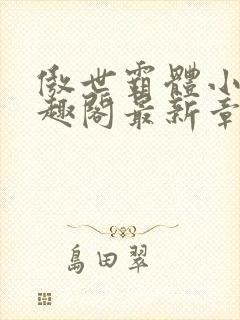 傲世霸體小
趣閣最新章
島田翠